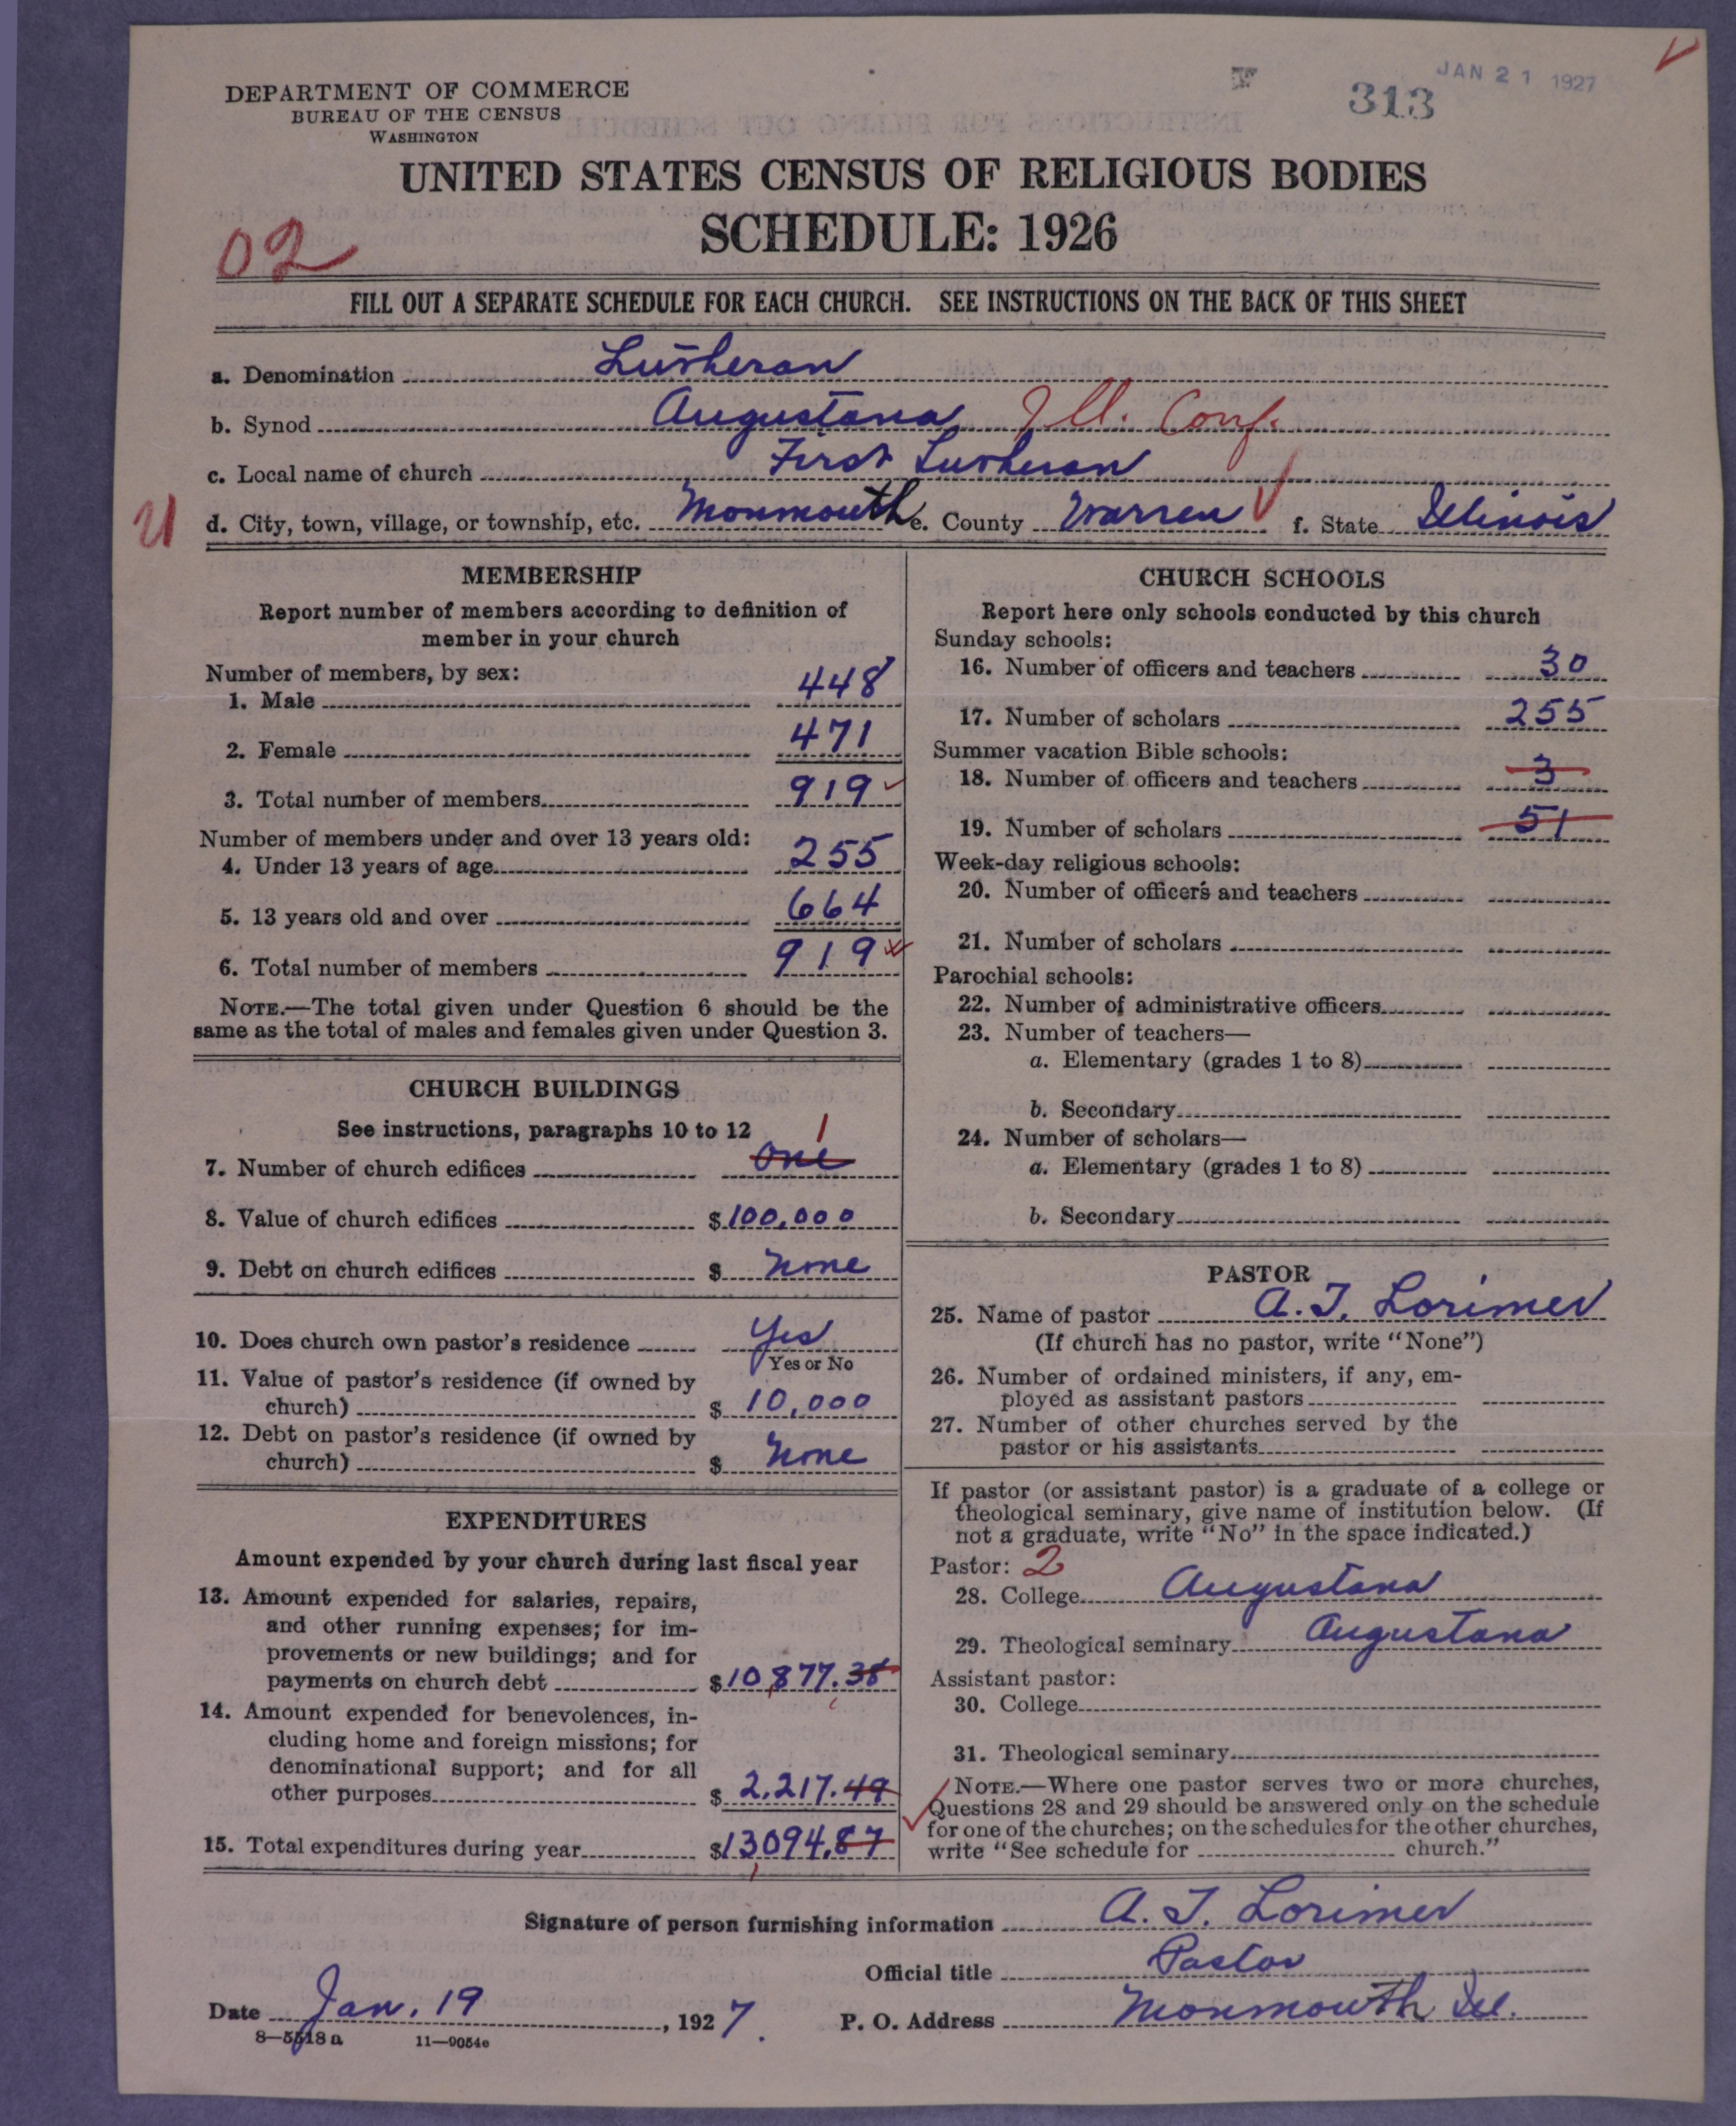 JAN 21 1927
313
DEPARTMENT OF COMMERCE
BUREAU OF THE CENSUS
WASHINGTON
UNITED STATES CENSUS OF RELIGIOUS BODIES
SCHEDULE: 1926
02
FILL OUT A SEPARATE SCHEDULE FOR EACH CHURCH. SEE INSTRUCTIONS ON THE BACK OF THIS SHEET
a. Denomination Lutheran
b. Synod Augustana Ill. Conf.
c. Local name of church First Lutheran
U d. City, town, village, or township, etc. Monmouth e. County Warren f. State Illinois
MEMBERSHIP
Report number of members according to definition of
member in your church
Number of members, by sex:
1. Male 448
2. Female 471
3. Total number of members 919
Number of members under and over 13 years old:
4. Under 13 years of age 255
5. 13 years old and over 664
6. Total number of members 919
NOTE.—The total given under Question 6 should be the
same as the total of males and females given under Question 3.
CHURCH BUILDINGS
See instructions, paragraphs 10 to 12
1
7. Number of church edifices one
8. Value of church edifices $100,000
9. Debt on church edifices $ None
10. Does church own pastor's residence Yes
Yes or No
11. Value of pastor's residence (if owned by
church) $ 10,000
12. Debt on pastor's residence (if owned by
church) $ None
EXPENDITURES
Amount expended by your church during last fiscal year
13. Amount expended for salaries, repairs,
and other running expenses; for im-
provements or new buildings; and for
payments on church debt $10,877.38
14. Amount expended for benevolences, in-
cluding home and foreign missions; for
denominational support; and for all
other purposes $ 2,217.49
15. Total expenditures during year $13,094.87
CHURCH SCHOOLS
Report here only schools conducted by this church
Sunday schools:
16. Number of officers and teachers 30
17. Number of scholars 255
Summer vacation Bible schools:
18. Number of officers and teachers 3
19. Number of scholars 51
Week-day religious schools:
20. Number of officers and teachers
21. Number of scholars
Parochial schools:
22. Number of administrative officers
23. Number of teachers—
a. Elementary (grades 1 to 8)
b. Secondary
24. Number of scholars—
a. Elementary (grades 1 to 8)
b. Secondary
PASTOR
25. Name of pastor A. T. Lorimer
(If church has no pastor, write "None")
26. Number of ordained ministers, if any, em-
ployed as assistant pastors
27. Number of other churches served by the
pastor or his assistants
If pastor (or assistant pastor) is a graduate of a college or
theological seminary, give name of institution below. (If
not a graduate, write "No" in the space indicated.)
Pastor: 2
28. College Augustana
29. Theological seminary Augustana
Assistant pastor:
30. College
31. Theological seminary
NOTE.—Where one pastor serves two or more churches,
Questions 28 and 29 should be answered only on the schedule
for one of the churches; on the schedules for the other churches,
write "See schedule for church."
Signature of person furnishing information A. T. Lorimer
Official title Pastor
Date Jan. 19, 1927. P. O. Address Monmouth Ill.
8—5518a 11—9054e